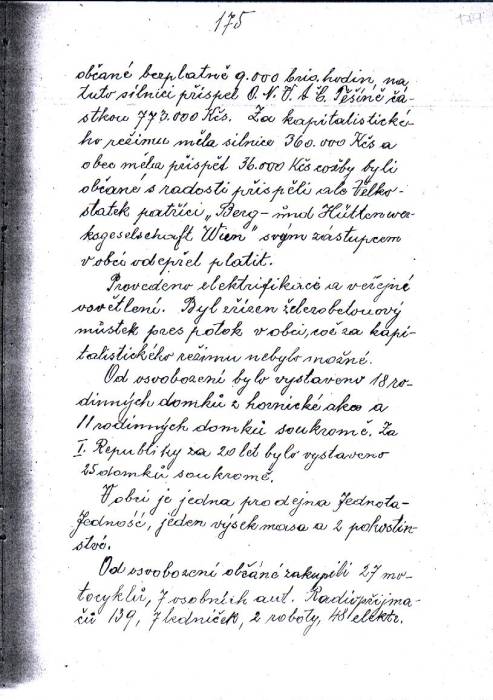 175
občané bezplatně 9.000 brig. hodin, na
tuto silnici přispěl O.N.V. v Č. Těšíně čá-
stkou 773.000 Kčs. Za kapitalistické-
ho režimu měla silnice 360.000 Kčs a
obec měla přispět 36.000 Kčs což by byli
občané s radosti přispěli ale Velko-
statek patřící „Berg- und Hüttenwer-
ksgeselschaft Wien" svým zástupcem
v obci odepřel platit.
Provedeno elektrifikace a veřejné
osvětlení. Byl zřízen železobetonový
můstek přes potok v obci, což za kapi-
talistického režimu nebylo možné.
Od osvobození bylo vystaveno 18 ro-
dinných domků z hornické akce a
11 rodinných domků soukromě. Za
I. Republiky za 20 let bylo vystaveno
25 domků soukromě.
V obci je jedna prodejna Jednota-
Jedność, jeden výsek masa a 2 pohostin-
stvé.
Od osvobození občáné zakupili 27 mo-
tocyklů, 7 osobních aut. Radiopřijma-
čů 139, 7 ledniček, 2 roboty, 48 elektr.